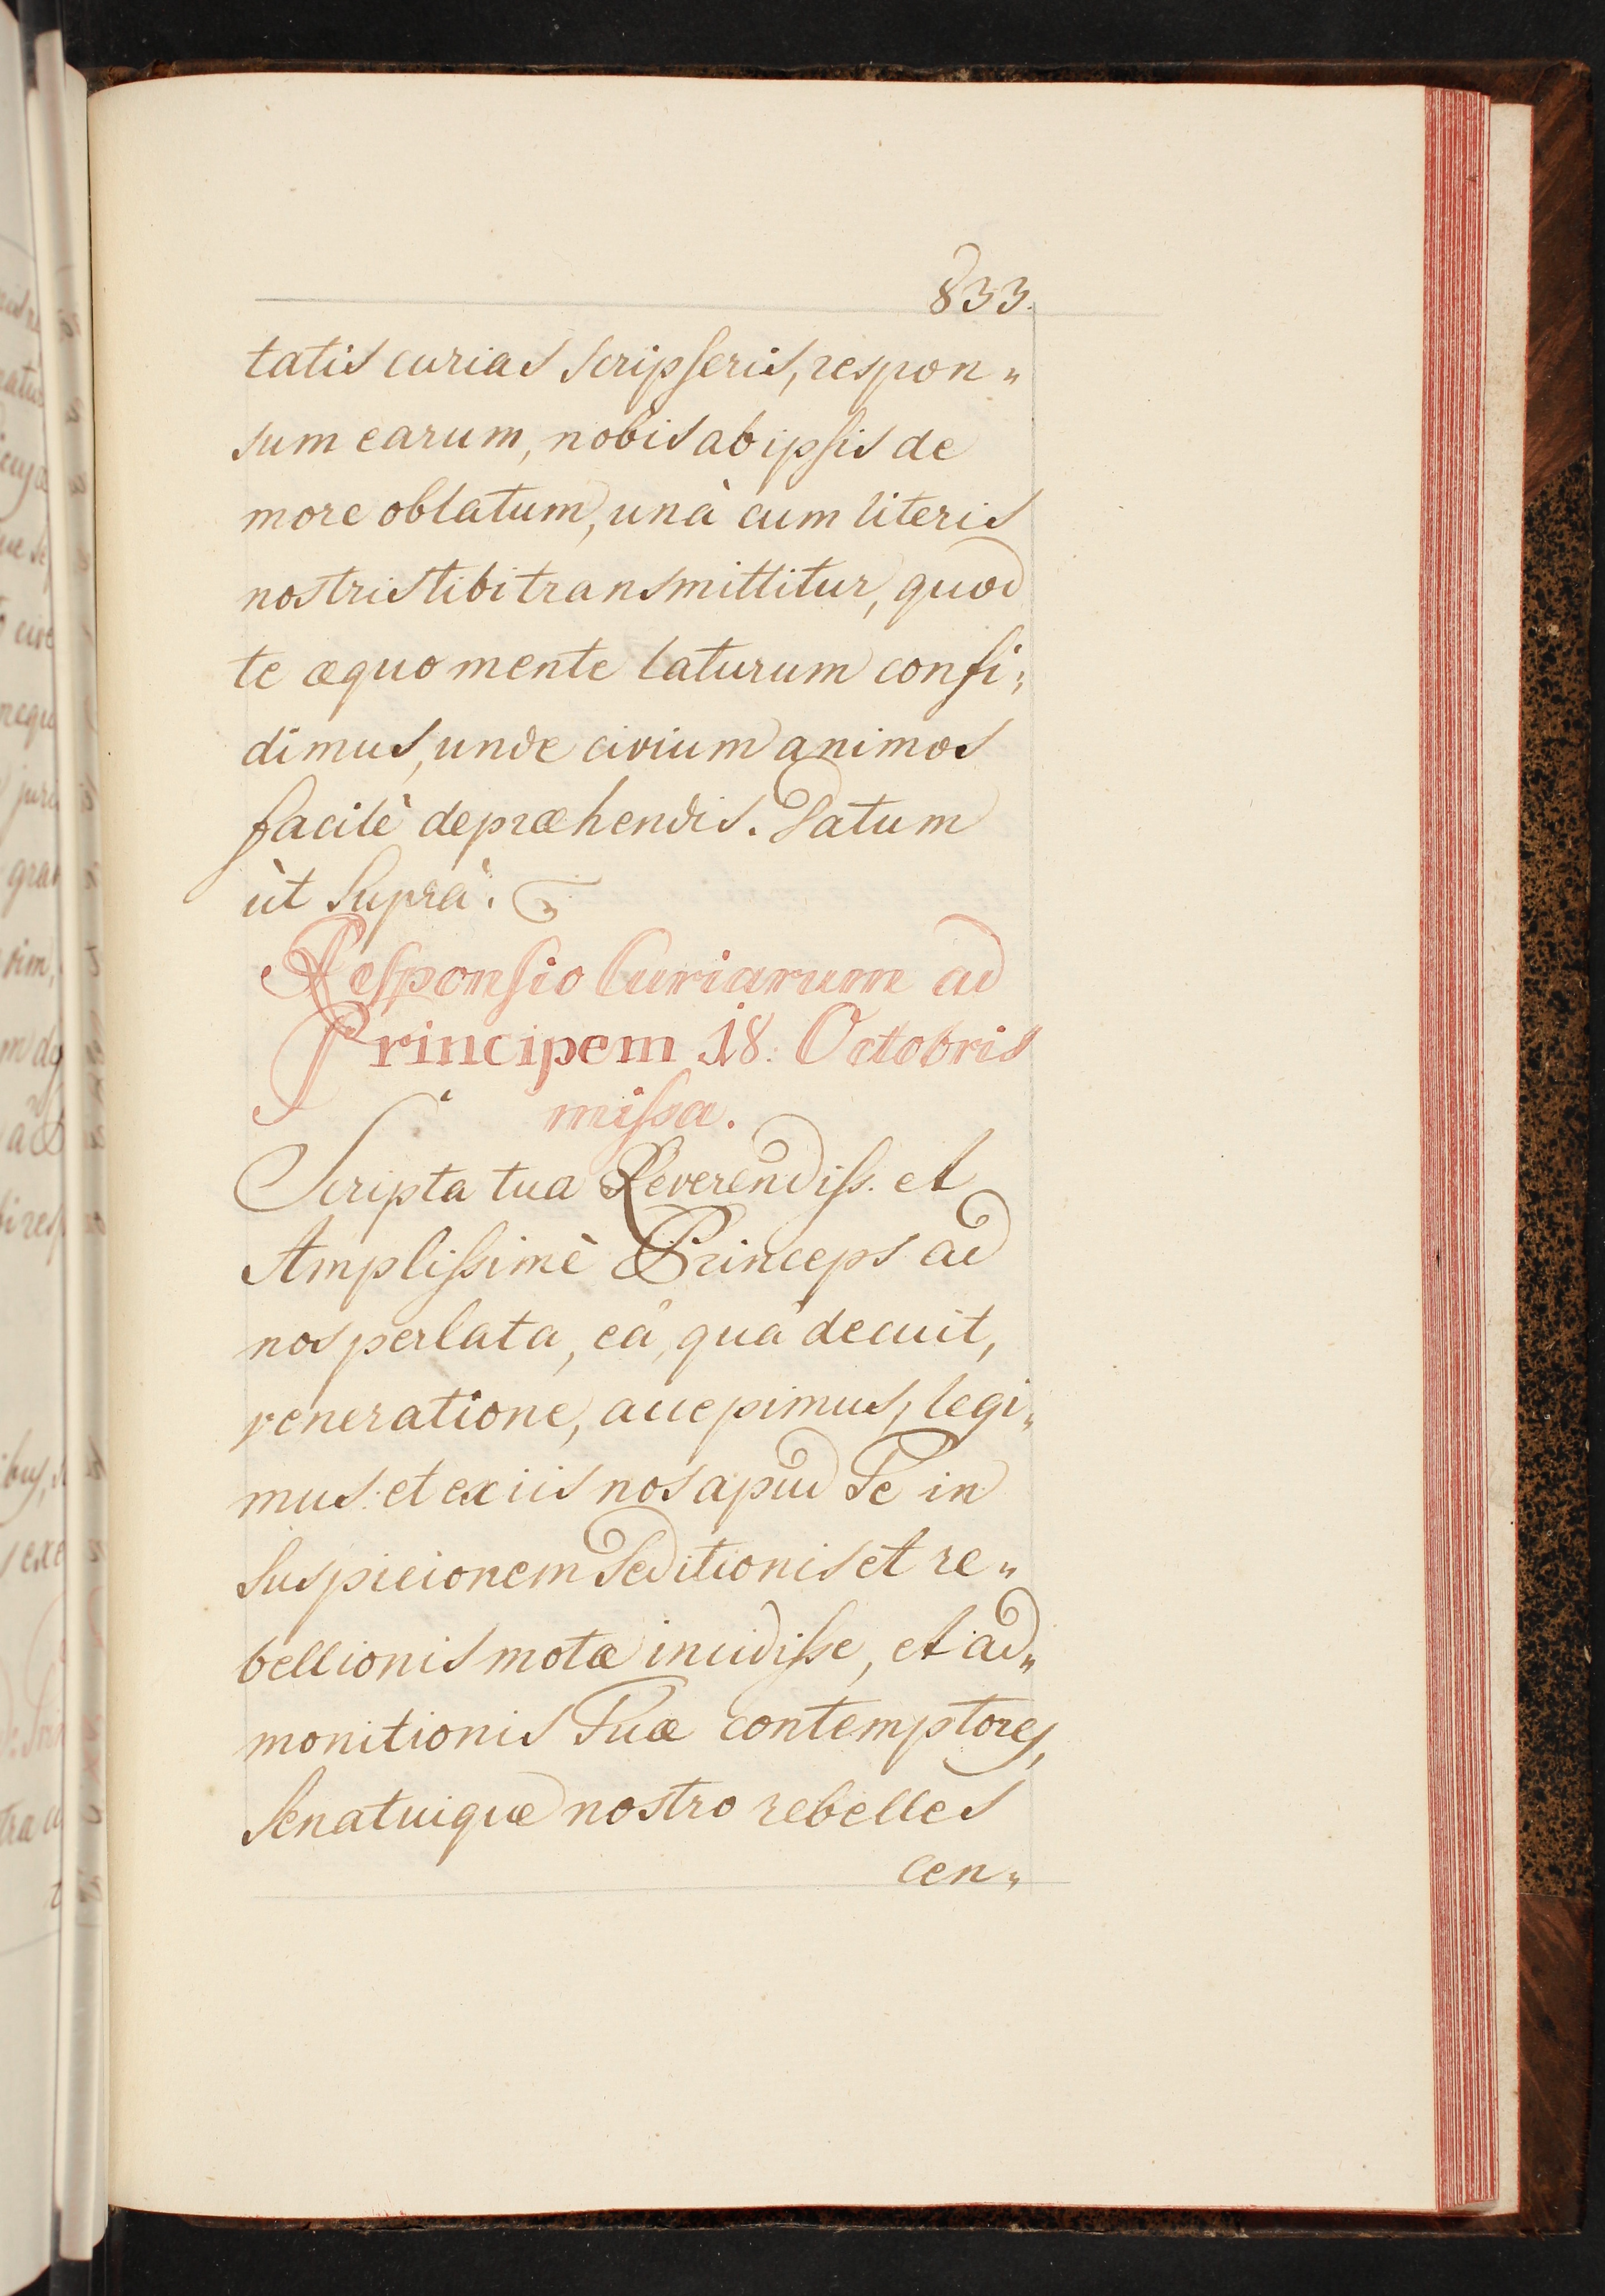 833.
tatis curias scripseris, respon„
sum earum, nobis ab ipsis de
more oblatum, unà cum literis
nostris tibi transmittitur, quod
te æquo mente laturum confi„
dimus, unde civium animos
facilè depræhendis. Datum
ùt suprà.
Responsio Curiarum ad
Principem 18. Octobris
missa.
Scripta tua Reverendiss. et
Amplissimè Princeps ad
nos perlata, eâ, quâ decuit,
veneratione, accepimus, legi„
mus: et ex iis nos apud Te in
suspicionem seditionis et re„
bellionis motæ incidisse, et ad„
monitionis Tuæ contemptores,
Senatuique nostro rebelles
cen„